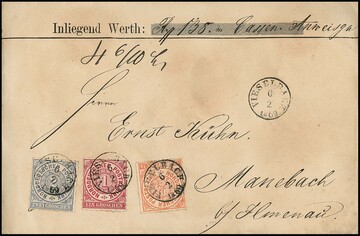 Inliegend Werth: Rg 135. in Cassen Anweisg
4 6/10 Lt
Herrn
Ernst Kühn
VIESELBACH
6
2
1869
Manebach
b/ Ilmenau
EIN GROSCHEN